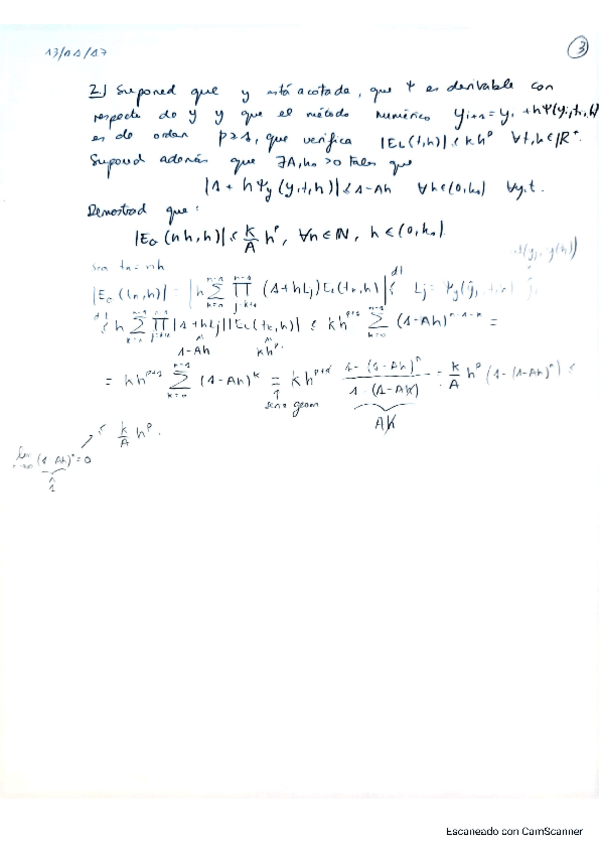 13/01/17
3
2.) Suponed que y está acotada, que Ψ es derivable con
respecto de y y que el método numérico y_{i+1} = y_i + hΨ(y_i, t_i, h)
es de orden p ≥ 1, que verifica |E_L(t,h)| ≤ kh^p ∀t,h ∈ ℝ^+.
Supond además que ∃A,h_0 > 0 tales que
|1 + hΨ_y(y,t,h)| ≤ 1-Ah ∀h∈(0,h_0) ∀y,t.
Demostrad que:
|E_G(nh,h)| ≤ k/A h^p, ∀n∈ℕ, h∈(0,h_0).
Sea t_n = nh
|E_G(t_n,h)| = |h Σ Π (1+hL_j) E_L(t_k,h)| ≤ L_j = Ψ_y(ŷ_j
≤ h Σ Π |1+hL_j| |E_L(t_k,h)| ≤ kh^{p+1} Σ (1-Ah)^{n-1-k} =
1-Ah kh^p.
= kh^{p+1} Σ (1-Ah)^k = kh^{p+1} (1-(1-Ah)^n)/(1-(1-Ah)) = k/A h^p (1-(1-Ah)^n) ≤
serie geom
≤ k/A h^p.
(1-Ah)^n = 0
1
Escaneado con CamScanner